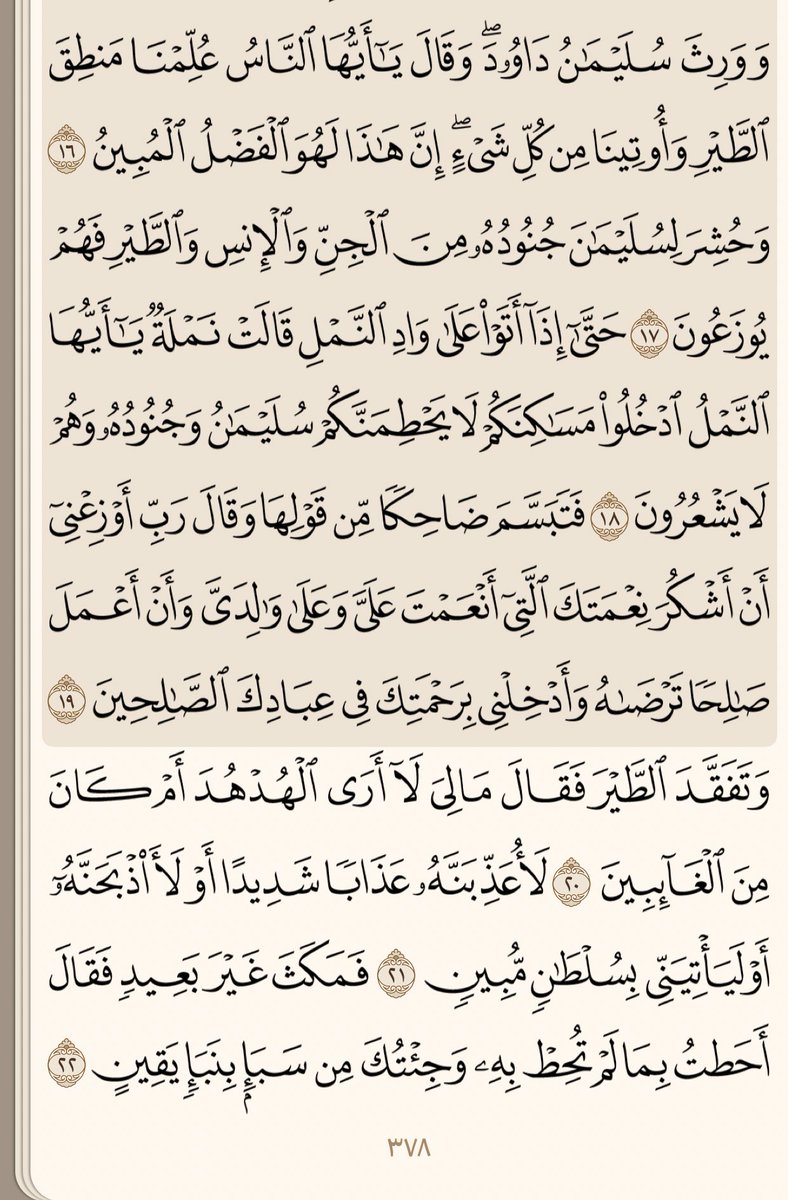 وَوَرِثَ سُلَيْمَٰنُ دَاوُۥدَۖ وَقَالَ يَٰٓأَيُّهَا ٱلنَّاسُ عُلِّمْنَا مَنطِقَ
ٱلطَّيْرِ وَأُوتِينَا مِن كُلِّ شَىْءٍۖ إِنَّ هَٰذَا لَهُوَ ٱلْفَضْلُ ٱلْمُبِينُ ١٦
وَحُشِرَ لِسُلَيْمَٰنَ جُنُودُهُۥ مِنَ ٱلْجِنِّ وَٱلْإِنسِ وَٱلطَّيْرِ فَهُمْ
يُوزَعُونَ ١٧ حَتَّىٰٓ إِذَآ أَتَوْا۟ عَلَىٰ وَادِ ٱلنَّمْلِ قَالَتْ نَمْلَةٌ يَٰٓأَيُّهَا
ٱلنَّمْلُ ٱدْخُلُوا۟ مَسَٰكِنَكُمْ لَا يَحْطِمَنَّكُمْ سُلَيْمَٰنُ وَجُنُودُهُۥ وَهُمْ
لَا يَشْعُرُونَ ١٨ فَتَبَسَّمَ ضَاحِكًا مِّن قَوْلِهَا وَقَالَ رَبِّ أَوْزِعْنِىٓ
أَنْ أَشْكُرَ نِعْمَتَكَ ٱلَّتِىٓ أَنْعَمْتَ عَلَىَّ وَعَلَىٰ وَٰلِدَىَّ وَأَنْ أَعْمَلَ
صَٰلِحًا تَرْضَىٰهُ وَأَدْخِلْنِى بِرَحْمَتِكَ فِى عِبَادِكَ ٱلصَّٰلِحِينَ ١٩
وَتَفَقَّدَ ٱلطَّيْرَ فَقَالَ مَالِىَ لَآ أَرَى ٱلْهُدْهُدَ أَمْ كَانَ
مِنَ ٱلْغَآئِبِينَ ٢٠ لَأُعَذِّبَنَّهُۥ عَذَابًا شَدِيدًا أَوْ لَأَا۟ذْبَحَنَّهُۥٓ
أَوْ لَيَأْتِيَنِّى بِسُلْطَٰنٍ مُّبِينٍ ٢١ فَمَكَثَ غَيْرَ بَعِيدٍ فَقَالَ
أَحَطتُ بِمَا لَمْ تُحِطْ بِهِۦ وَجِئْتُكَ مِن سَبَإٍۭ بِنَبَإٍ يَقِينٍ ٢٢
٣٧٨